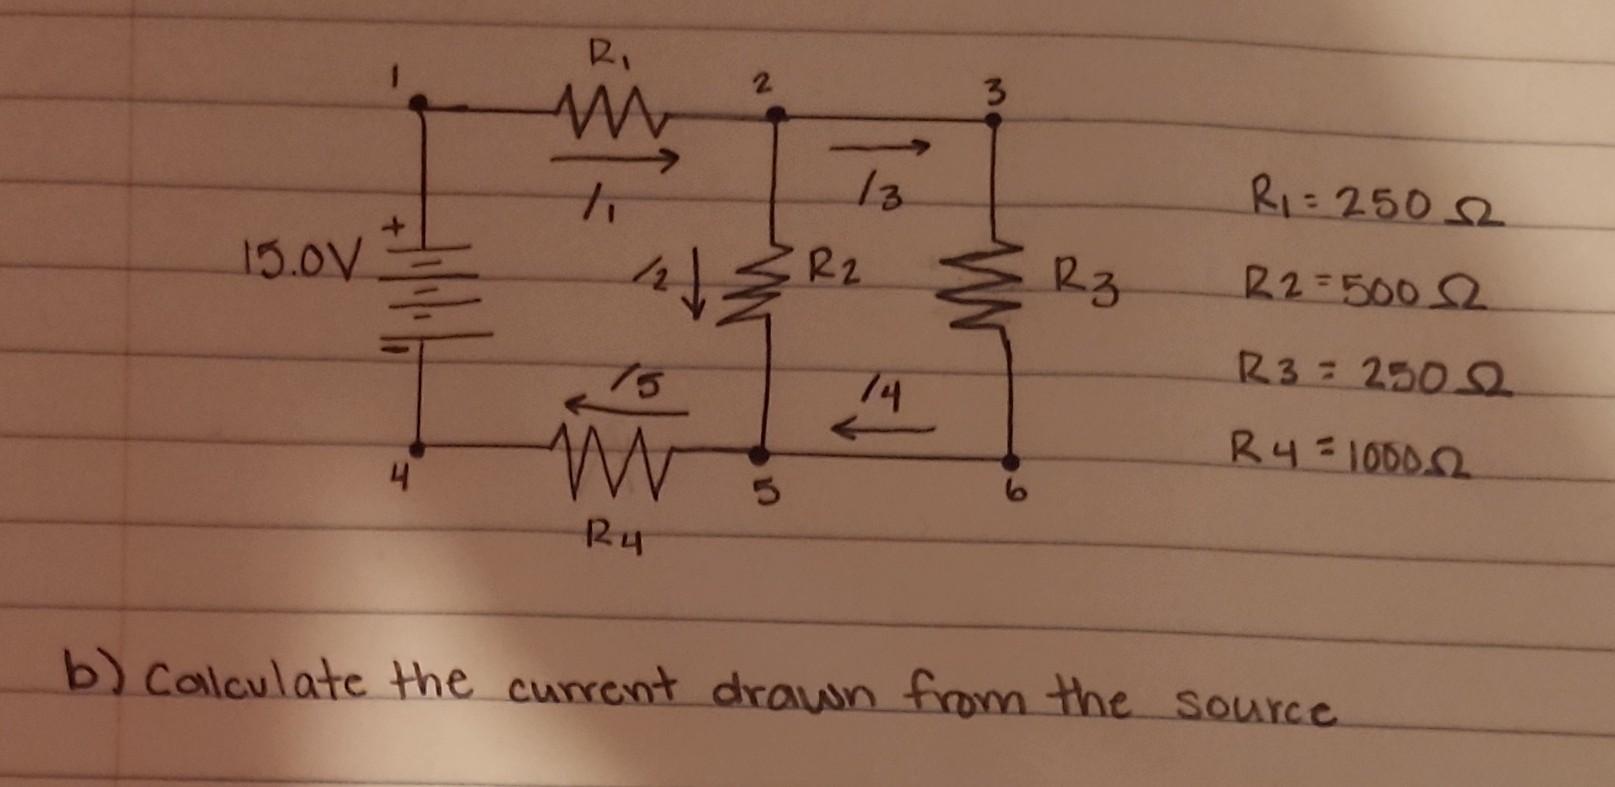 R1
1
2
3
I1
I3
+
15.0V
I2
R2
R3
-
I5
I4
4
5
6
R4
R1 = 250 Ω
R2 = 500 Ω
R3 = 250 Ω
R4 = 1000 Ω
b) Calculate the current drawn from the source